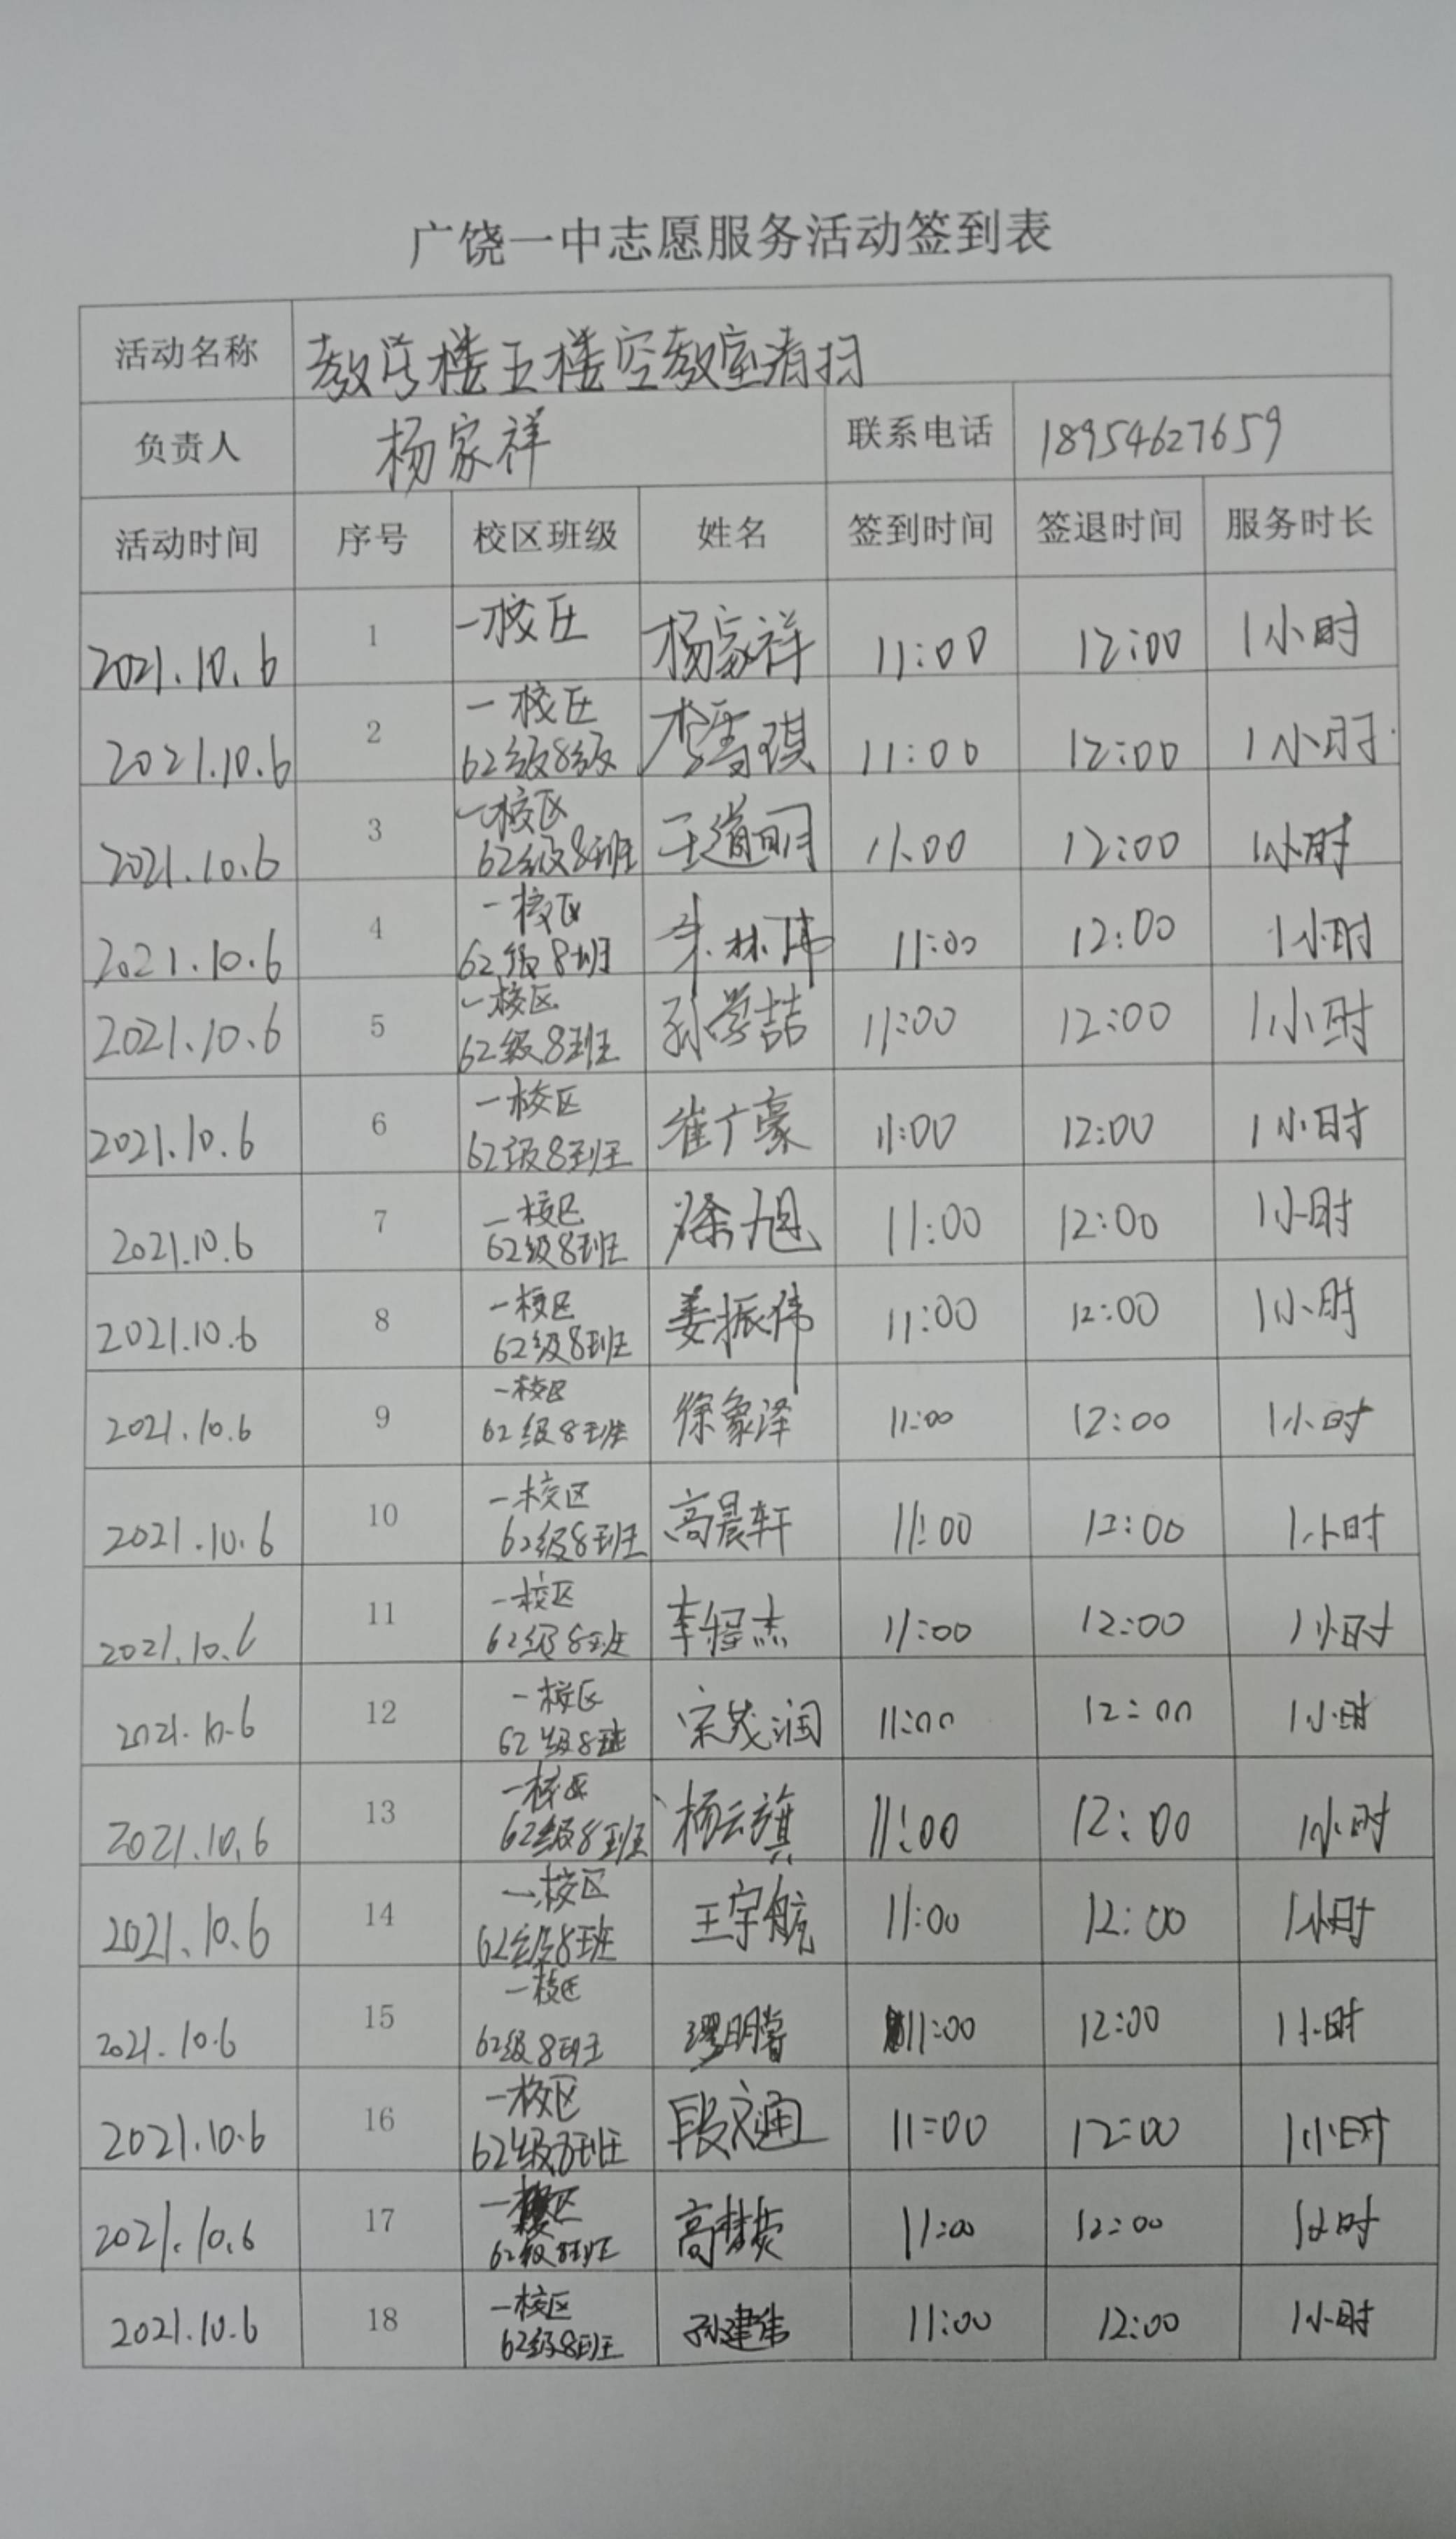 广饶一中志愿服务活动签到表
活动名称 教学楼五楼空教室清扫
负责人 杨家祥 联系电话 18954627659
活动时间 序号 校区班级 姓名 签到时间 签退时间 服务时长
2021.10.6 1 一校区 杨家祥 11:00 12:00 1小时
2021.10.6 2 一校区 62级8级 李雪琪 11:00 12:00 1小时
2021.10.6 3 一校区 62级8班 王道明 11:00 12:00 1小时
2021.10.6 4 一校区 62级8班 朱林伟 11:00 12:00 1小时
2021.10.6 5 一校区 62级8班 孙学喆 11:00 12:00 1小时
2021.10.6 6 一校区 62级8班 崔广豪 11:00 12:00 1小时
2021.10.6 7 一校区 62级8班 徐旭 11:00 12:00 1小时
2021.10.6 8 一校区 62级8班 姜振伟 11:00 12:00 1小时
2021.10.6 9 一校区 62级8班 徐象泽 11:00 12:00 1小时
2021.10.6 10 一校区 62级8班 高晨轩 11:00 12:00 1小时
2021.10.6 11 一校区 62级8班 李程杰 11:00 12:00 1小时
2021.10.6 12 一校区 62级8班 宋茂润 11:00 12:00 1小时
2021.10.6 13 一校区 62级8班 杨云旗 11:00 12:00 1小时
2021.10.6 14 一校区 62级8班 王宇航 11:00 12:00 1小时
2021.10.6 15 一校区 62级8班 11:00 12:00 1小时
2021.10.6 16 一校区 62级8班 段文通 11:00 12:00 1小时
2021.10.6 17 一校区 62级8班 11:00 12:00 1小时
2021.10.6 18 一校区 62级8班 孙建伟 11:00 12:00 1小时